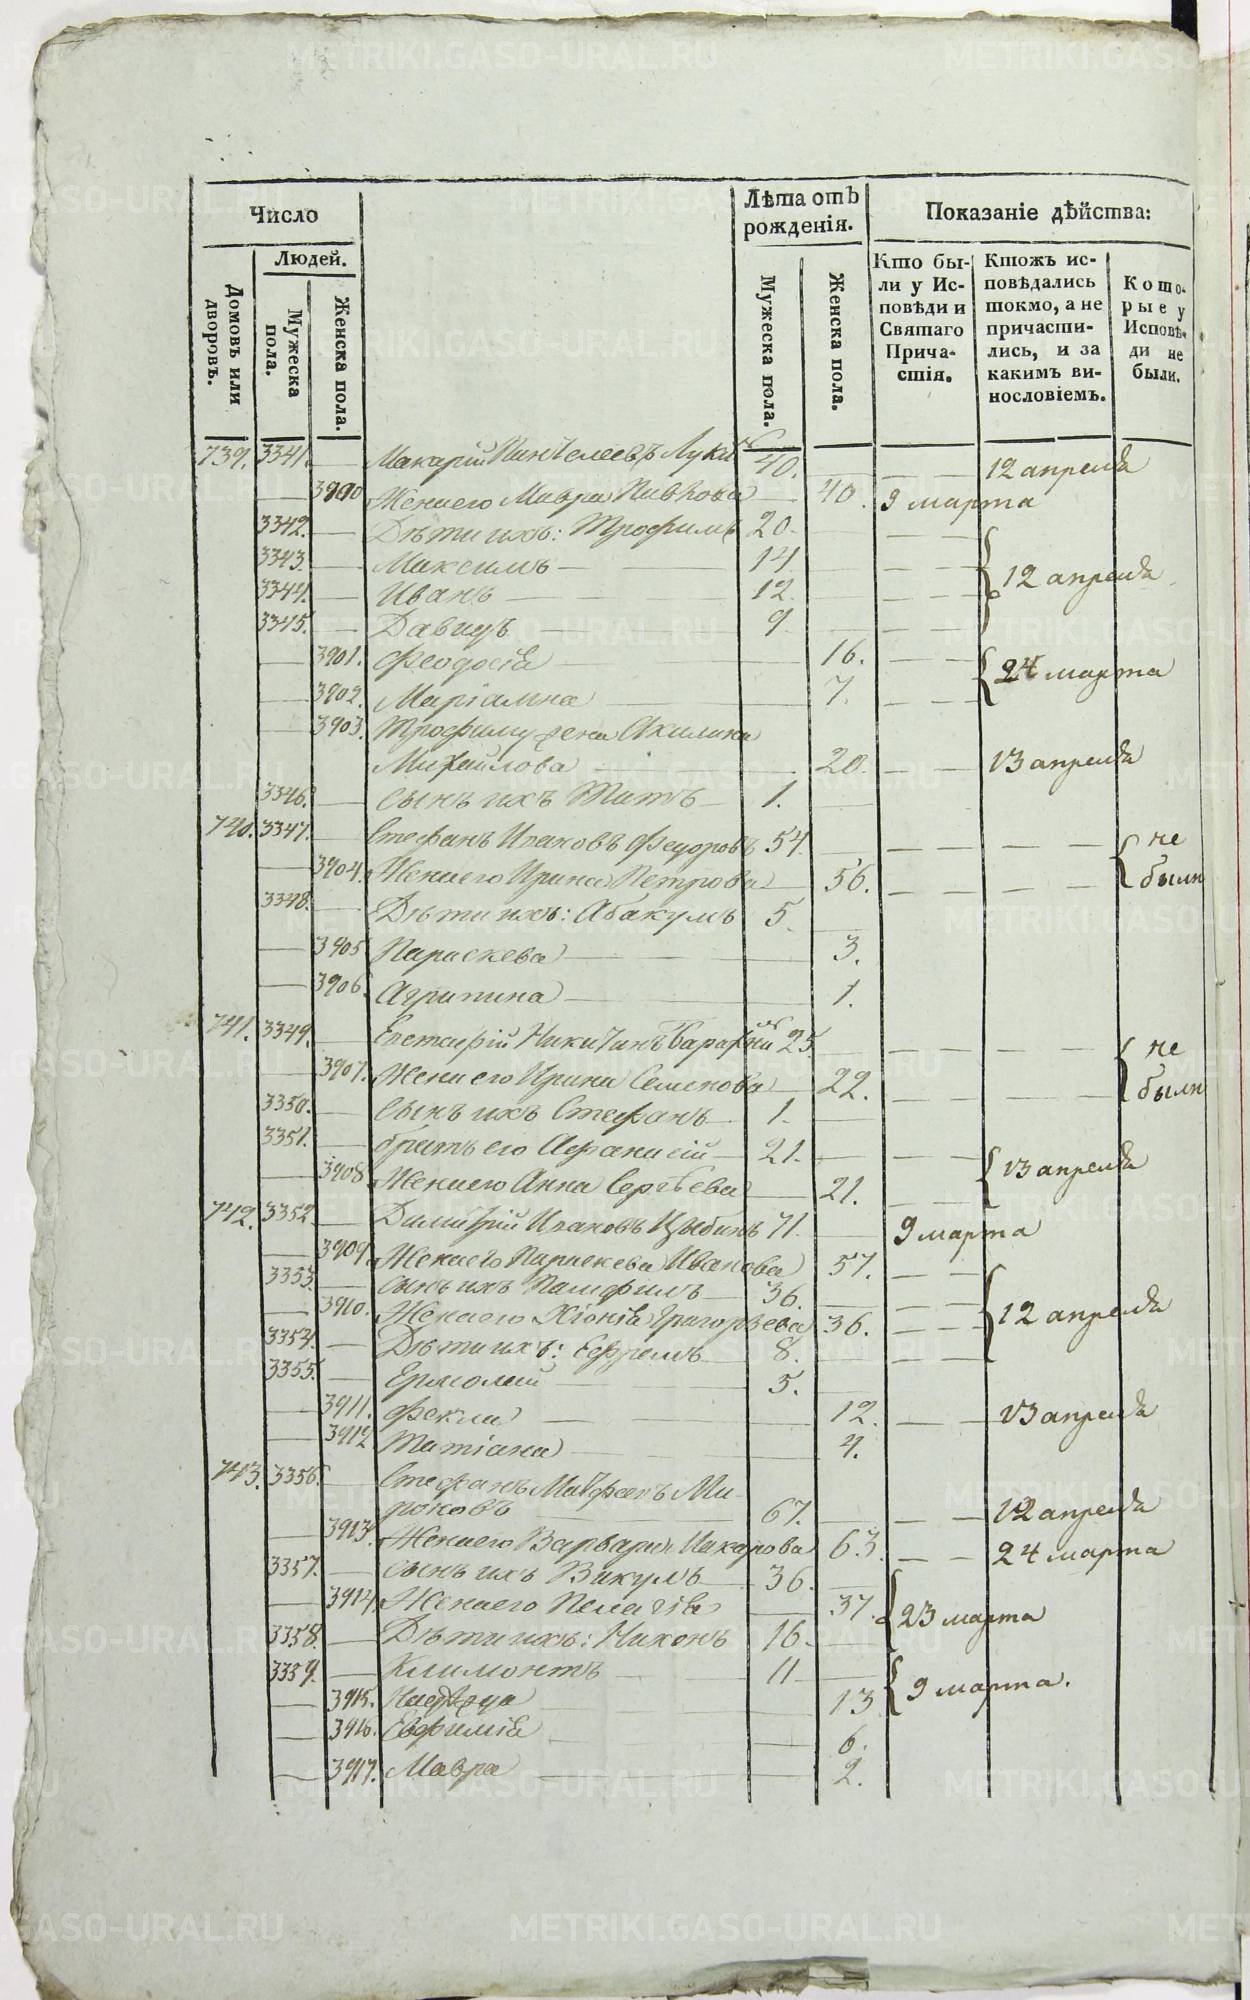 Число
Лѣта отъ рожденія.
Показаніе дѣйства:
Домовъ или дворовъ.
Людей.
Мужеска пола.
Женска пола.
Мужеска пола.
Женска пола.
Кто были у Исповѣди и Святаго Причастія.
Ктожъ исповѣдались токмо, а не причастились, и за какимъ винословіемъ.
Которые у Исповѣди не были.
739. 3341. — Макарій Пантелеевъ 40. — — 12 апреля
— 3900 Жена его Мавра — 40. 9 марта
3342. — Дѣти ихъ: Трофимъ 20. — —
3343. — Максимъ — 14 — — 12 апреля
3344. — Иванъ — 12. — —
3345. — Давидъ — 9 — —
— 3901. Феодосія — 16. — — 24 марта
— 3902. Маріамна — 7. — —
— 3903. Трофиму жена Акилина
Михайлова — 20. — — 13 апреля
3346. — сынъ ихъ Титъ — 1. —
740. 3347. — Стефанъ Исаковъ Федоровъ 54. — — — — не
— 3904. Жена его Ирина Петрова — 56. — — — — были
3348. — Дѣти ихъ: Абакумъ 5. —
— 3905 Параскева — 3.
— 3906. Агрипина — 1.
741. 3349. — Никитинъ 25. — — — — не
— 3907. Жена его Ирина Семенова — 22. — — — — были
3350. — сынъ ихъ Стефанъ — 1. —
3351. — братъ его Афанасій — 21. — — — 13 апреля
— 3908 Жена его Анна Сергѣева — 21. — —
742. 3352. — Димитрій Исаковъ Цыбинъ 71. — 9 марта
— 3909. Жена его Параскева Иванова 57. — —
3353. — сынъ ихъ Памфилъ — 36. — — —
— 3910. Жена его Хіонія Григорьева 36. — — 12 апреля
3354. — Дѣти ихъ: Ефремъ 8. — — —
3355. — Ермолай — 5. —
— 3911. Фекла — 12. — — 13 апреля
— 3912 Татіана — 4.
743. 3356. — Стефанъ Матфеевъ Ми-
роновъ — 67. — — — 12 апреля
— 3913. Жена его Варвара 63. — — 24 марта
3357. — сынъ ихъ Викулъ — 36. —
— 3914. Жена его Пелагія — 37. 23 марта
3358. — Дѣти ихъ: Никонъ 16. —
3359. — Климонтъ — 11 — 9 марта.
— 3915. 13
— 3916. Евфимія — 6.
— 3917. Мавра — 2.
METRIKI.GASO-URAL.RU